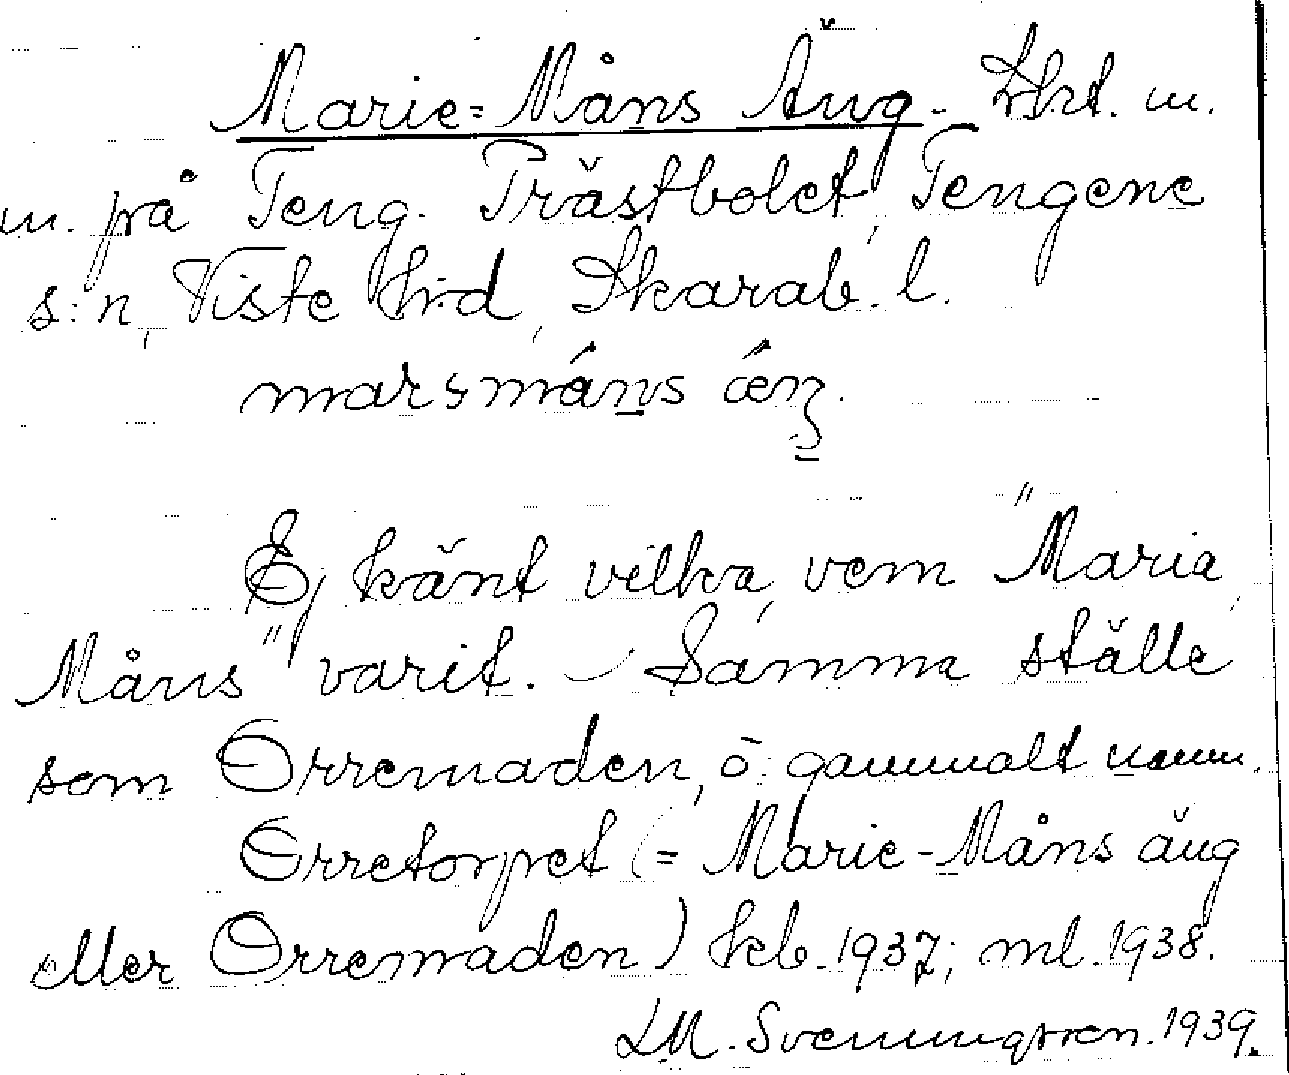 Marie-Måns Äng. Skt. m.
m. på Teng. Prästbolet, Tengene
s:n, Viste h:d, Skarab. l.
marsmáns
Ej känt vilka, vem "Maria
Måns" varit. – Samma ställe
som Orremaden, ö. gammalt namn.
Orretorpet (= Marie-Måns äng
eller Orremaden) kb. 1937; ml. 1938.
LM. Svenungsson. 1939.